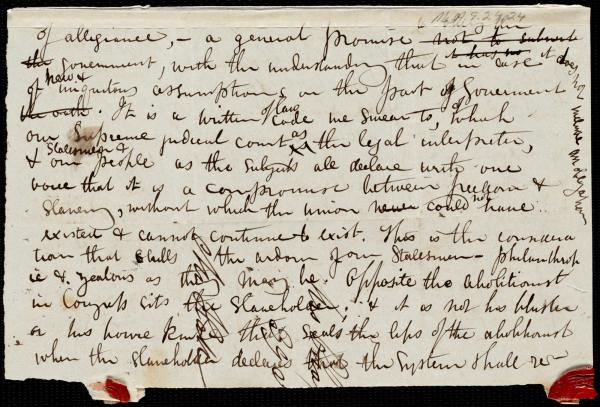 Ms.A.9.2.24.24
of allegiance, – a general promise not to subvert
the Government, with the understanding that in case
of new & iniquitous assumptions on the part of Government
it does not include an obligation
the oath. It is a written code of law we swear to, of which
our Supreme judicial court as the legal interpreter,
& Statesmen & our people as the subjects all declare with one
voice that it is a compromise between freedom &
Slavery, without which the union never could not have
existed & cannot continue to exist. This is the considera
tion that stalls the ardom of our Statesmen – philanthrop
ic & zealous as they may be. Opposite the abolitionist
in Congress sits the Slaveholder; & it is not his bluster
or his bowie knife that seals the lips of the abolitionist
when the Slaveholder declares that the System shall re